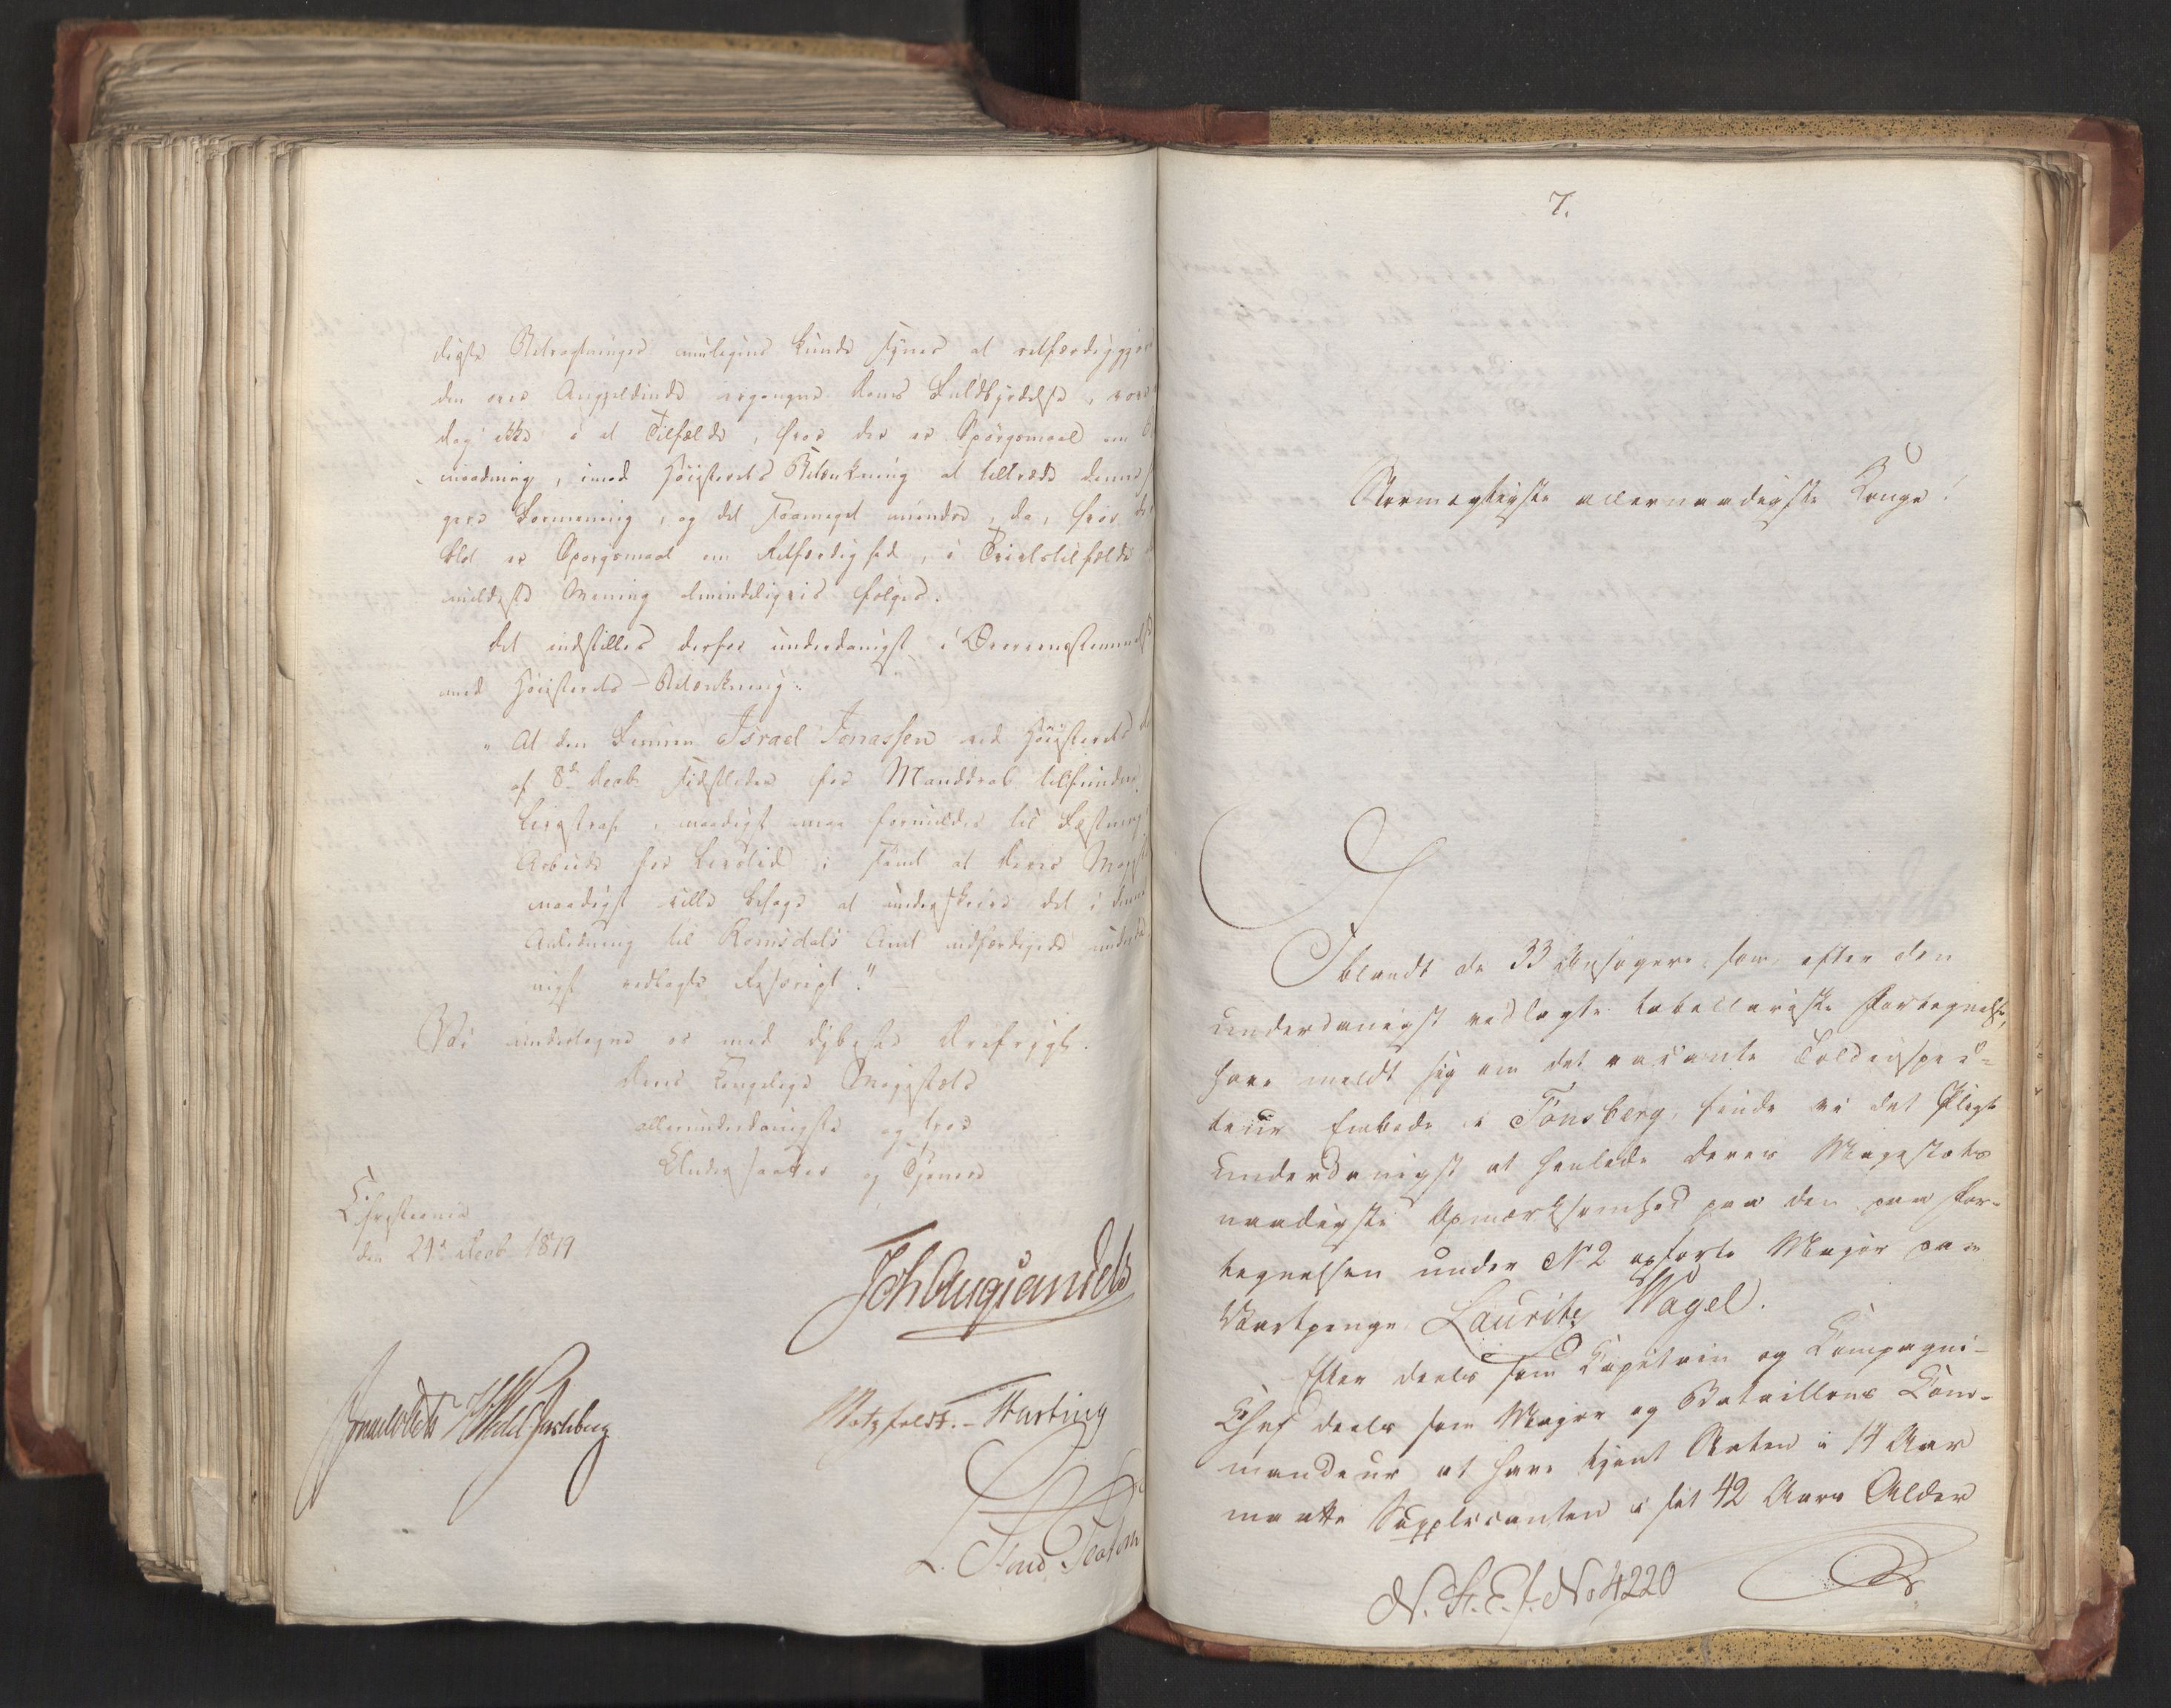 digste Betragtninger muligens kunde synes at retfærdiggjør
den over Angjeldende ergangne Doms Fuldbyrdelse, vove
dog ikke i et Tilfælde, hvor der er Spørgsmaal om
naadning, imod Høiesterets Betænkning at tiltræde denne
gere Formening, og det saameget mindre, da, hvor det
blot er Spørgsmaal om Retfærdighed, i Tvivlstilfælde
mildeste Mening almindeligviis følges.
Det indstilles derfor underdanigst i Overeensstemmelse
med Høiesterets Betænkning:
"At den Finnen Israel Jonassen ved Høiesterets
af 8de Decb. sidstleden for Manddrab tilfundne
Livsstraf, naadigst maa formildes til Fæstnings
Arbeide for Livstid, samt at Deres Maj
naadigst ville behage at underskrive det i denne
Anledning til Romsdals Amt udfærdigede underda
nigst vedlagte Rescript."
Vi undertegne os med dybeste Ærefrygt.
Deres Kongelige Majestæts
allerunderdanigste og troe
Undersaatter og Tjenere
Christiania
den 21de Decb. 1819
Joh Aug Sandels
Sommerhielm HWedel Jarlsberg
Motzfeldt. – Hartvig
L. Stoud Platou
7.
Stormægtigste allernaadigste Konge!
Iblandt de 33 Ansøgere som efter den
underdanigst vedlagte tabellariske Fortegnelse,
have meldt sig om det vacante Toldinspec-
teur Embede i Tønsberg, finde vi det Pligt
underdanigst at henlede Deres Majestæts
naadigste Opmærksomhed paa den paa For-
tegnelsen under No 2 opførte Major paa
Vartpenge Lauritz Nagel.
Efter deels som Capitain og Compagni-
Chef deels som Major og Bataillons Com-
mandeur at have tjent Staten i 14 Aar
maatte Supplicanten i sit 42 Aars Alder
N. St. E. J. No 4220